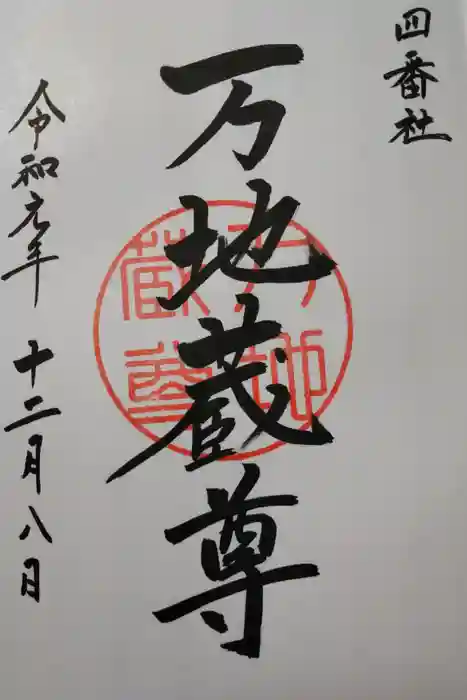 四番社
万地蔵尊
令和元年 十二月八日